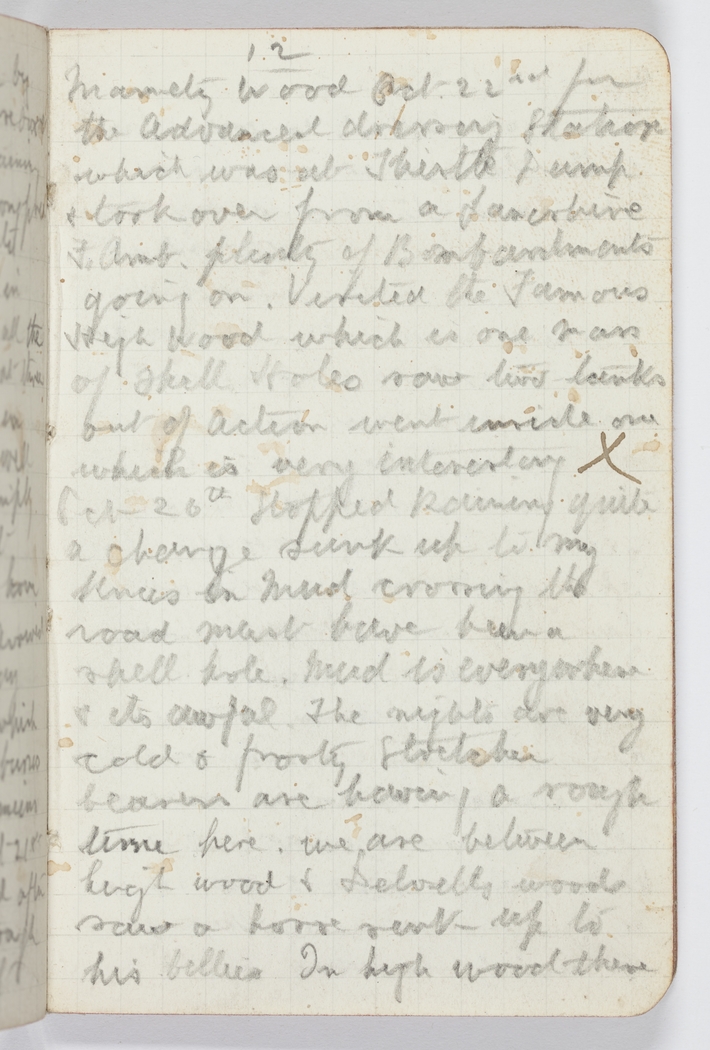 12
Mametz Wood Oct 22nd for
the Advanced dressing Station
which was at Thistle Dump.
& took over from a Lancshire
F. Amb. plenty of Bombardments
going on. Visited the Famous
High Wood which is one mass
of Shell Holes saw two tanks
out of action went inside one
which is very interesting X
Oct 26th Stopped Raining quite
a change sunk up to my
Knees in Mud crossing the
road must have been a
shell hole. Mud is everywhere
& its awful. The nights are very
cold & frosty Stretcher
bearers are having a rough
time here. we are between
high wood & Delvells woods
saw a horse sunk up to
his bellies In high wood there